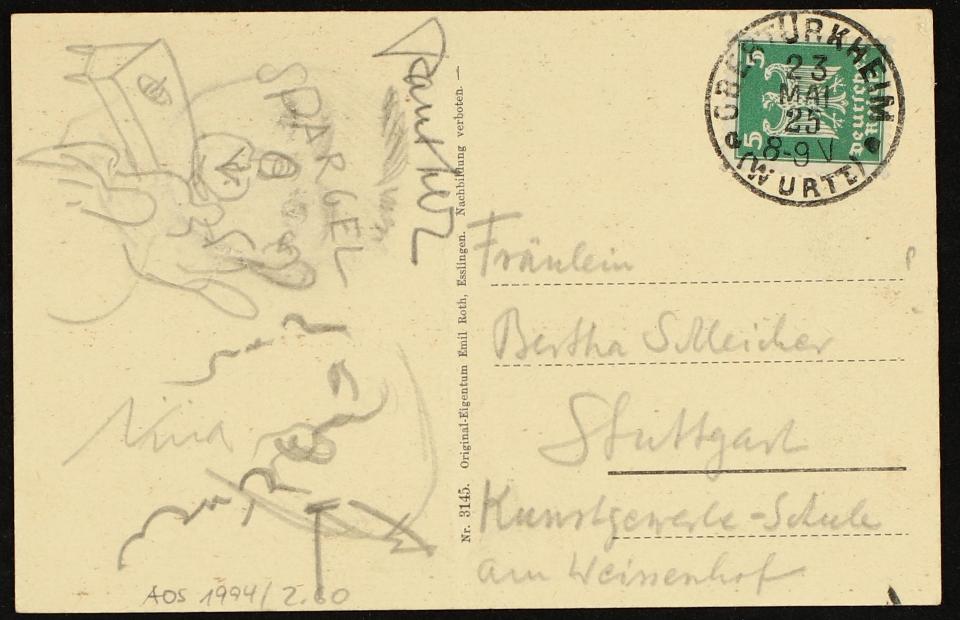 SPARGEL
Nina
Nr. 3145. Original-Eigentum Emil Roth, Esslingen. Nachbildung verboten.
5 5
Deutsches
OBERTÜRKHEIM
23
MAI
25
8-9 V
(WÜRTT.)
Fräulein
Bertha Schleicher
Stuttgart
Kunstgewerbe-Schule
am Weissenhof
AOS 1994/2.60